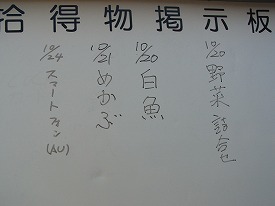 拾得物掲示板
10/20 野菜詰合せ
10/20 白魚
10/21 めかぶ
10/24 スマートフォン(AU)